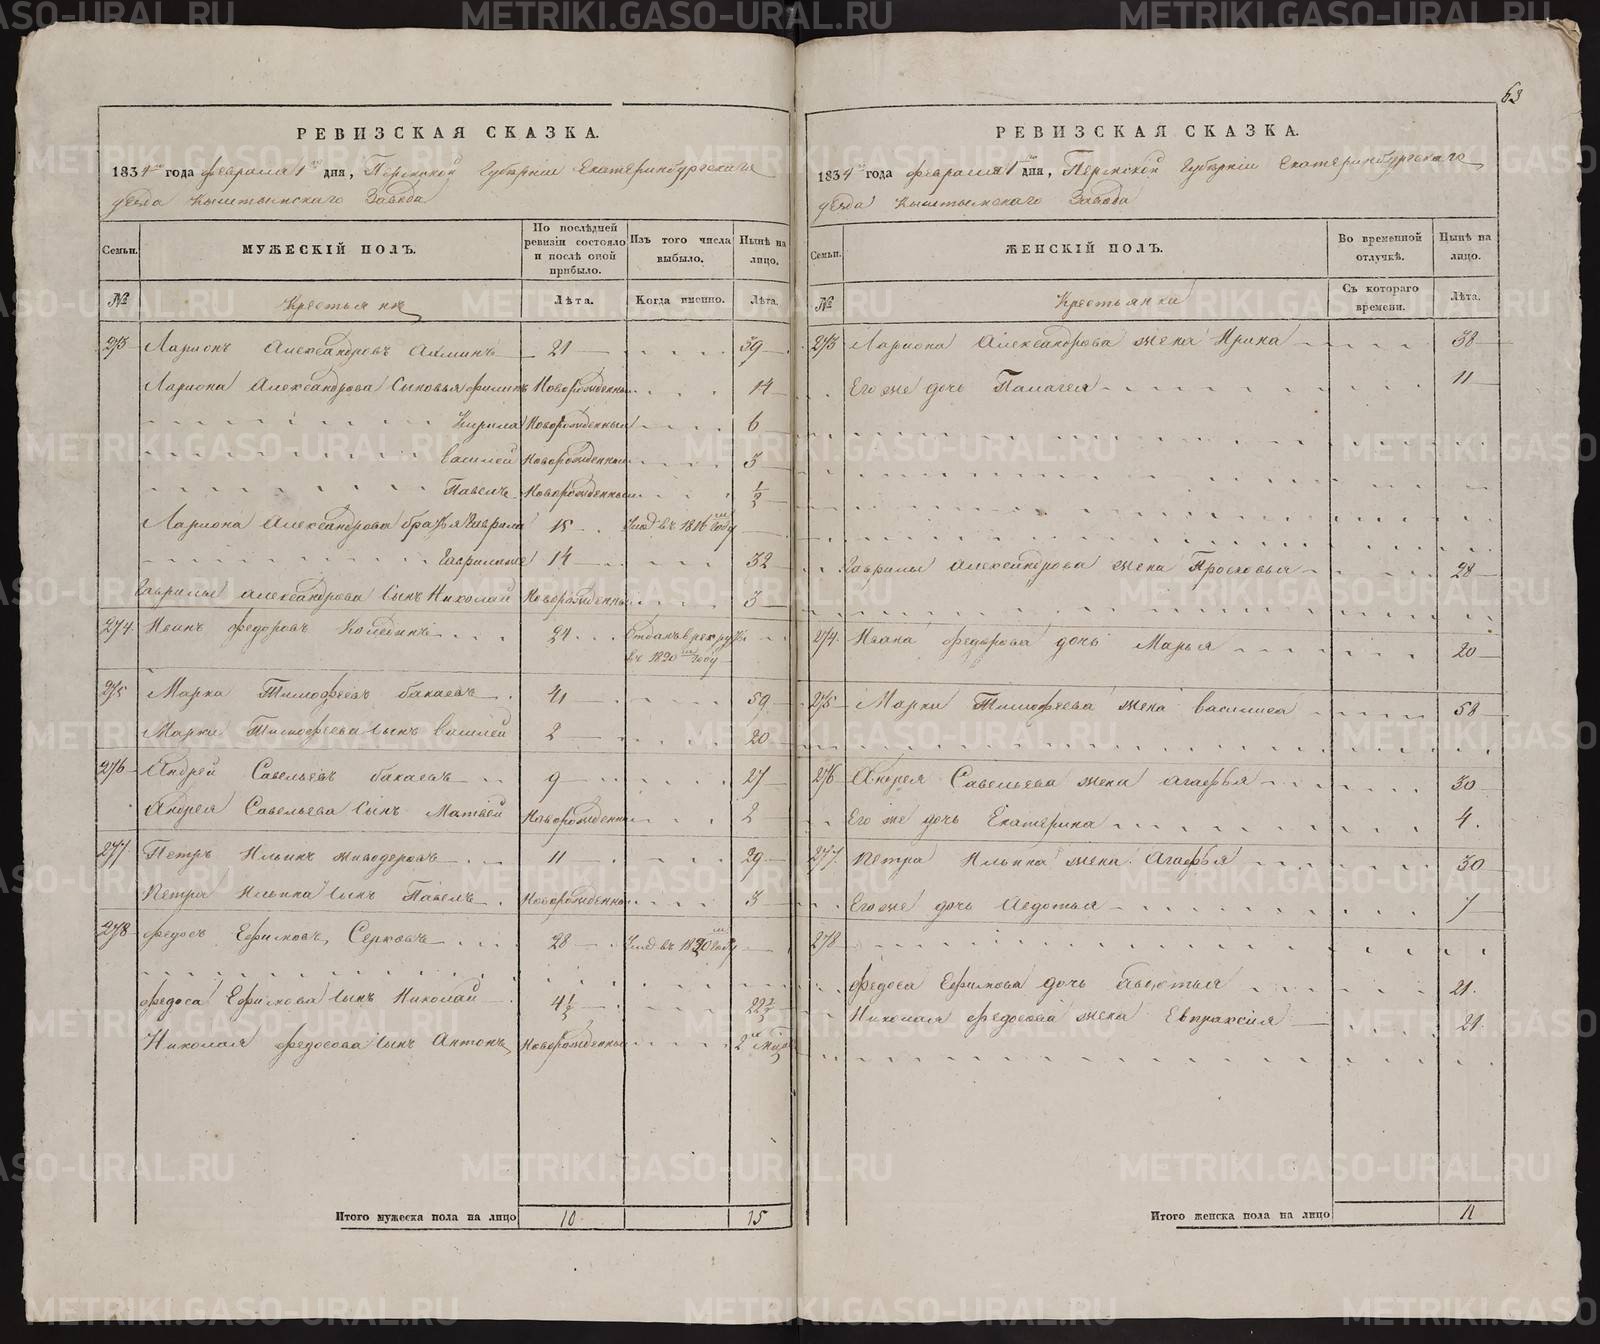 63
РЕВИЗСКАЯ СКАЗКА.
1834го года февраля 1го дня, Пермской Губерніи Екатеринбургскаго
уезда Кыштымскаго Завода
Семьи.
МУЖЕСКІЙ ПОЛЪ.
По послѣдней ревизіи состояло и послѣ оной прибыло.
Изъ того числа выбыло.
Нынѣ на лицо.
№
Крестьяне
Лѣта.
Когда именно.
Лѣта.
273 Ларионъ Александровъ 21 39
Лариона Александрова Сыновья Новорожденный 14
Кирила Новорожденный 6
Василей Новорожденный 3
Павелъ Новорожденный 1/2
Лариона Александрова братья Гаврила 15 Умѣ въ 1816мъ году
Гаврила же 14 32
Гаврилы Александрова Сынъ Николай Новорожденный 3
274 Иванъ Федоровъ 24 Отданъ в рекруты
въ 1820мъ году
275 Марка Тимофеевъ бакаевъ 41 59
Марки Тимофеева Сынъ Василей 2 20
276 Андрей Савельевъ бакаевъ 9 27
Андрея Савельева Сынъ Матвей Новорожденный 2
277 Петръ Ильинъ живодеровъ 11 29
Петра Ильина Сынъ Павелъ Новорожденный 3
278 Федосъ Ефимовъ Серковъ 28 Умѣ въ 1830мъ году
Федоса Ефимова Сынъ Николай 4 1/2 22 1/2
Николая Федосова Сынъ Антонъ Новорожденный 2
Итого мужеска пола на лицо 10 15
РЕВИЗСКАЯ СКАЗКА.
1834го года февраля 1го дня, Пермской Губерніи Екатеринбургскаго
уезда Кыштымскаго Завода
Семьи.
ЖЕНСКІЙ ПОЛЪ.
Во временной отлучкѣ.
Нынѣ на лицо.
№
Крестьянки
Съ котораго времени.
Лѣта.
273 Лариона Александрова жена Ирина 38
Его же дочь Палагея 11
Гаврилы Александрова жена Просковья 28
274 Ивана Федорова дочь Марья 20
275 Марки Тимофеева жена Василиса 58
276 Андрея Савельева жена Агафья 30
Его же дочь Екатерина 4.
277. Петра Ильина жена Агафья 30
Его же дочь Федотья 7
278
Федоса Ефимова дочь Авдотья 21.
Николая Федосова жена Евпраксия 21
Итого женска пола на лицо 11
METRIKI.GASO-URAL.RU